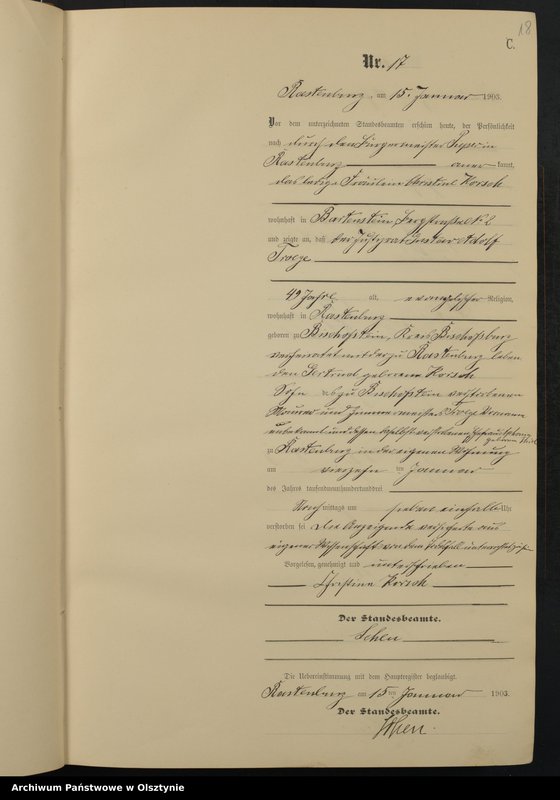 18
C.
Nr. 17
Rastenburg, am 15. Januar 1903.
Vor dem unterzeichneten Standesbeamten erschien heute, der Persönlichkeit
nach durch den Bürgermeister
Rastenburg aner kannt,
das ledige Fräulein Christine Korsch
wohnhaft in Bartenstein,
und zeigte an, daß der Adolf
Troege
49 Jahre alt, evangelischer Religion,
wohnhaft in Rastenburg
geboren zu Bischofstein, Kreis
verheiratet mit der zu Rastenburg leben
den Gertrud geborene Korsch
Sohn zu Bischofstein verstorbenen
Maurer und Zimmermeisters Troege Vorname
unbekannt und dessen verstorbenen Ehefrau
geborene
zu Rastenburg in der eigenen Wohnung
am vierzehn ten Januar
des Jahres tausendneunhundertunddrei
Nach mittags um sieben einhalb Uhr
verstorben sei Die Anzeigende versicherte aus
eigener Wissenschaft von dem Todesfall unterrichtet zu sein.
Vorgelesen, genehmigt und unterschrieben
Christine Korsch
Der Standesbeamte.
Die Uebereinstimmung mit dem Hauptregister beglaubigt.
Rastenburg am 15 ten Januar 1903.
Der Standesbeamte.
Archiwum Państwowe w Olsztynie